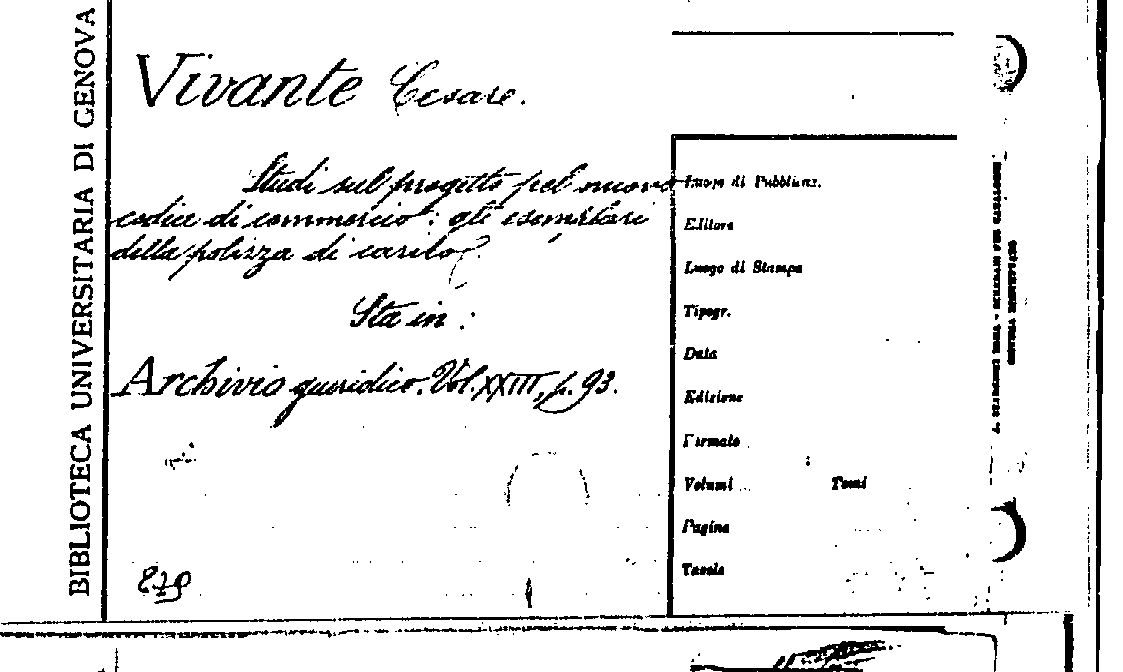 BIBLIOTECA UNIVERSITARIA DI GENOVA
Vivante Cesare.
Studi sul progetto pel nuovo
codice di commercio: gli esemplari
della polizza di carico.
Sta in:
Archivio giuridico. Vol. XXIII, p. 93.
879
Luogo di Pubblicaz.
Editore
Luogo di Stampa
Tipogr.
Data
Edizione
Formato
Volumi Tomi
Pagine
Tavole